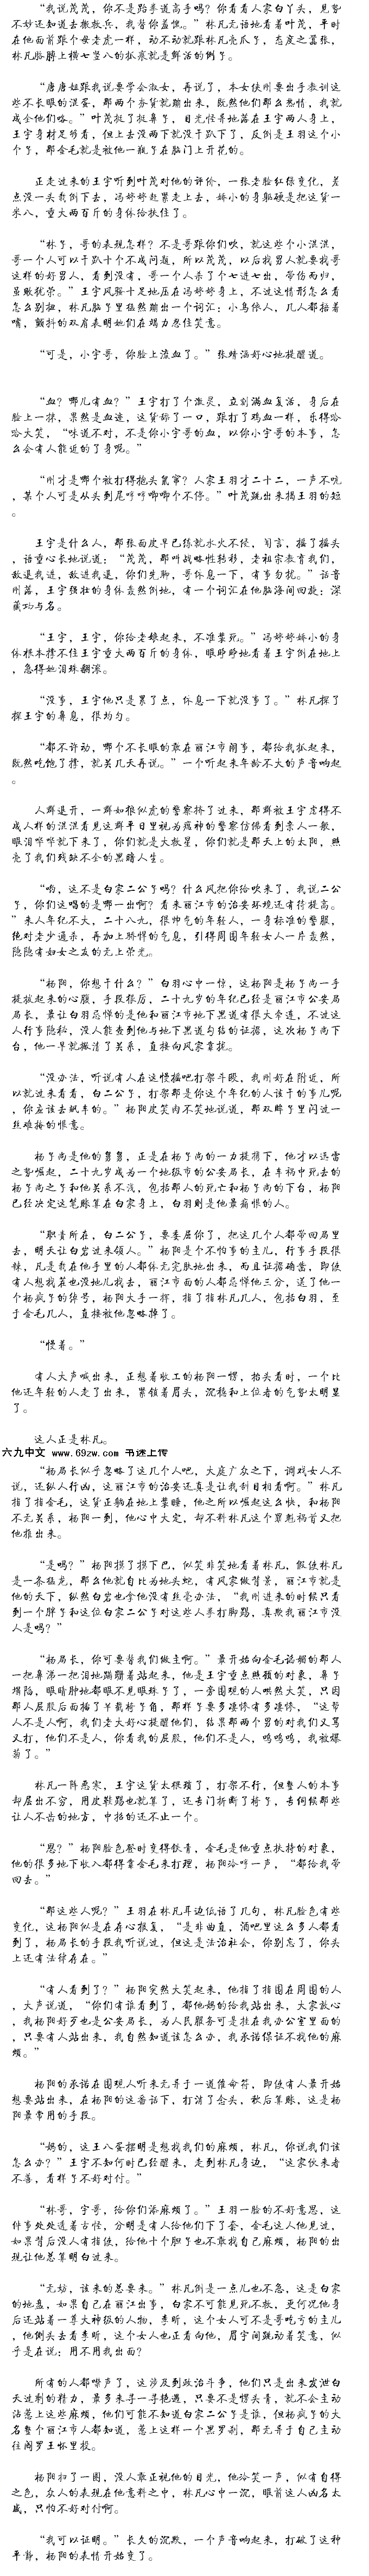 “我说茂茂，你不是跆拳道高手吗？你看看人家白丫头，见势
不妙还知道去搬救兵，我替你羞愧。”林凡无语地看着叶茂，平时
在他面前跟个母老虎一样，动不动就跟林凡亮爪子，态度之嚣张，
林凡胳膊上横七竖八的抓痕就是鲜活的例子。
“唐唐姐跟我说要学会淑女，再说了，本女侠刚要出手教训这
些不长眼的混蛋，那两个夯货就蹦出来，既然他们那么热情，我就
成全他们咯。”叶茂挺了挺鼻子，目光怪异地落在王宇两人身上，
王宇身材足够看，但上去没两下就没干趴下了，反倒是王羽这个小
个子，那金毛就是被他一瓶子在脑门上开花的。
正走过来的王宇听到叶茂对他的评价，一张老脸红绿变化，差
点没一头栽倒下去，冯婷婷赶紧走上去，娇小的身躯硬是把这货一
米八，重大两百斤的身体给扶住了。
“林子，哥的表现怎样？不是哥跟你们吹，就这些个小混混，
哥一个人可以干趴十个不成问题，所以茂茂，以后找男人就要找哥
这样的好男人，看到没有，哥一个人杀了个七进七出，带伤而归，
虽败犹荣。”王宇风骚十足地压在冯婷婷身上，不过这情形怎么看
怎么别扭，林凡脑子里猛然蹦出一个词汇：小鸟依人，几人都捂着
嘴，颤抖的双肩表明她们在竭力忍住笑意。
“可是，小宇哥，你脸上流血了。”张靖涵好心地提醒道。
“血？哪儿有血？”王宇打了个激灵，立刻满血复活，身后在
脸上一抹，果然是血迹，这货舔了一口，跟打了鸡血一样，乐得哈
哈大笑，“味道不对，不是你小宇哥的血，以你小宇哥的本事，怎
么会有人能近的了身呢。”
“刚才是哪个被打得抱头鼠窜？人家王羽才二十二，一声不吭
，某个人可是从头到尾哼哼唧唧个不停。”叶茂跳出来揭王羽的短
。
王宇是什么人，那张面皮早已练就水火不侵，闻言，摇了摇头
，语重心长地说道：“茂茂，那叫战略性转移，老祖宗教育我们，
敌退我进，敌进我退，你们先聊，哥休息一下，有事勿扰。”话音
刚落，王宇强壮的身体轰然倒地，有一个词汇在他脑海间回放：深
藏功与名。
“王宇，王宇，你给老娘起来，不准装死。”冯婷婷娇小的身
体根本撑不住王宇重大两百斤的身体，眼睁睁地看着王宇倒在地上
，急得她泪珠翻滚。
“没事，王宇他只是累了点，休息一下就没事了。”林凡探了
探王宇的鼻息，很均匀。
“都不许动，哪个不长眼的敢在丽江市闹事，都给我抓起来，
既然吃饱了撑，就关几天再说。”一个听起来年龄不大的声音响起
。
人群退开，一群如狼似虎的警察挤了过来，那群被王宇虐得不
成人样的混混看见这群平日里视为瘟神的警察仿佛看到亲人一般，
眼泪哗哗就下来了，你们就是大救星，你们就是那天上的太阳，照
亮了我们残缺不全的黑暗人生。
“哟，这不是白家二公子吗？什么风把你给吹来了，我说二公
子，你们这唱的是哪一出啊？看来丽江市的治安环境还有待提高。
”来人年纪不大，二十八九，很帅气的年轻人，一身标准的警服，
绝对老少通杀，再加上骄悍的气息，引得周围年轻女人一片轰然，
隐隐有妇女之友的无上荣光。
“杨阳，你想干什么？”白羽心中一惊，这杨阳是杨子尚一手
提拔起来的心腹，手段狠厉，二十九岁的年纪已经是丽江市公安局
局长，最让白羽忌惮的是他和丽江市地下黑道有很大牵连，不过这
人行事隐秘，没人能查到他与地下黑道勾结的证据，这次杨子尚下
台，他一早就撇清了关系，直接向风家靠拢。
“没办法，听说有人在这慢摇吧打架斗殴，我刚好在附近，所
以就过来看看，白二公子，打架那是你这个年纪的人该干的事儿呢
，你应该去飙车的。”杨阳皮笑肉不笑地说道，那双眸子里闪过一
丝难掩的恨意。
杨子尚是他的舅舅，正是在杨子尚的一力提携下，他才以迅雷
之势崛起，二十九岁成为一个地级市的公安局长，在车祸中死去的
杨子尚之子和他关系不浅，包括那人的死亡和杨子尚的下台，杨阳
已经决定这笔账算在白家身上，白羽则是他最痛恨的人。
“职责所在，白二公子，要委屈你了，把这几个人都带回局里
去，明天让白岩过来领人。”杨阳是个不怕事的主儿，行事手段很
辣，凡是栽在他手里的人都体无完肤地出来，而且证据确凿，即使
有人想找茬也没地儿找去，丽江市面的人都忌惮他三分，送了他一
个杨疯子的绰号，杨阳大手一挥，指了指林凡几人，包括白羽，至
于金毛几人，直接被他忽略掉了。
“慢着。”
有人大声喊出来，正想着收工的杨阳一愣，抬头看时，一个比
他还年轻的人走了出来，紧锁着眉头，沉稳和上位者的气势太明显
了。
这人正是林凡。
六九中文 www.69zw.com 书迷上传
“杨局长似乎忽略了这几个人吧，大庭广众之下，调戏女人不
说，还纵人行凶，这丽江市的治安还真是让我刮目相看啊。”林凡
指了指金毛，这货正躺在地上装睡，他之所以崛起这么快，和杨阳
不无关系，杨阳一到，他心中大定，却不料林凡这个罪魁祸首又把
他推出来。
“是吗？”杨阳捏了捏下巴，似笑非笑地看着林凡，假使林凡
是一条猛龙，那么他就自比为地头蛇，有风家做背景，丽江市就是
他的天下，纵然白岩也拿他没有丝毫办法，“我刚进来的时候只看
到一个胖子和这位白家二公子对这些人拳打脚踢，真欺我丽江市没
人是吗？”
“杨局长，你可要替我们做主啊。”最开始向金毛谄媚的那人
一把鼻涕一把泪地蹒跚着站起来，他是王宇重点照顾的对象，鼻子
塌陷，眼睛肿地都眼不见眼珠子了，一旁围观的人哄然大笑，只因
那人屁股后面插了半截椅子角，那样子要多凄惨有多凄惨，“这帮
人不是人啊，我们老大好心提醒他们，结果那两个男的对我们又骂
又打，他们不是人，你看我的屁股，他们不是人，呜呜呜，我被爆
菊了。”
林凡一阵恶寒，王宇这货太猥琐了，打架不行，但整人的本事
却层出不穷，用皮鞋踢也就算了，还专门折断了椅子，专伺候那些
让人不齿的地方，中招的还不止一个。
“恩？”杨阳脸色登时变得铁青，金毛是他重点扶持的对象，
他的很多地下收入都得靠金毛来打理，杨阳冷哼一声，“都给我带
回去。”
“那这些人呢？”王羽在林凡耳边低语了几句，林凡脸色有些
变化，这杨阳似是在存心报复，“是非曲直，酒吧里这么多人都看
到了，杨局长的手段我听说过，但这是法治社会，你别忘了，你头
上还有法律存在。”
“有人看到了？”杨阳突然大笑起来，他指了指围在周围的人
，大声说道，“你们有谁看到了，都他妈的给我站出来，大家放心
，我杨阳好歹也是公安局长，为人民服务可是挂在我办公室里面的
，只要有人站出来，我自然知道该怎么办，我承诺保证不找他的麻
烦。”
杨阳的承诺在围观人听来无异于一道催命符，即使有人最开始
想要站出来，在杨阳的这番话下，打消了念头，秋后算账，这是杨
阳最常用的手段。
“妈的，这王八蛋摆明是想找我们的麻烦，林凡，你说我们该
怎么办？”王宇不知何时已经醒来，走到林凡身边，“这家伙来者
不善，看样子不好对付。”
“林哥，宇哥，给你们添麻烦了。”王羽一脸的不好意思，这
件事处处透着古怪，分明是有人给他们下了套，金毛这人他见过，
如果背后没人有指使，给他十个胆子也不敢找自己麻烦，杨阳的出
现让他总算明白过来。
“无妨，该来的总要来。”林凡倒是一点儿也不急，这是白家
的地盘，如果自己在丽江出事，白家不可能见死不救，更何况他身
后还站着一尊大神级的人物，李昕，这个女人可不是哥吃亏的主儿
，他侧头去看李昕，这个女人也正看向他，眉宇间跳动着笑意，似
乎是在说：用不用我出面？
所有的人都噤声了，这涉及到政治斗争，他们只是出来发泄白
天过剩的精力，最多来寻一寻艳遇，只要不是愣头青，就不会主动
沾惹上这些麻烦，他们可能不知道白家二公子是谁，但杨疯子的大
名整个丽江市人都知道，惹上这样一个黑罗刹，那无异于自己主动
往阎罗王怀里投。
杨阳扫了一圈，没人敢正视他的目光，他冷笑一声，似有自得
之色，众人的表现在他意料之中，林凡心中一沉，眼前这人凶名太
盛，只怕不好对付啊。
“我可以证明。”长久的沉默，一个声音响起来，打破了这种
平静，杨阳的表情开始变了。